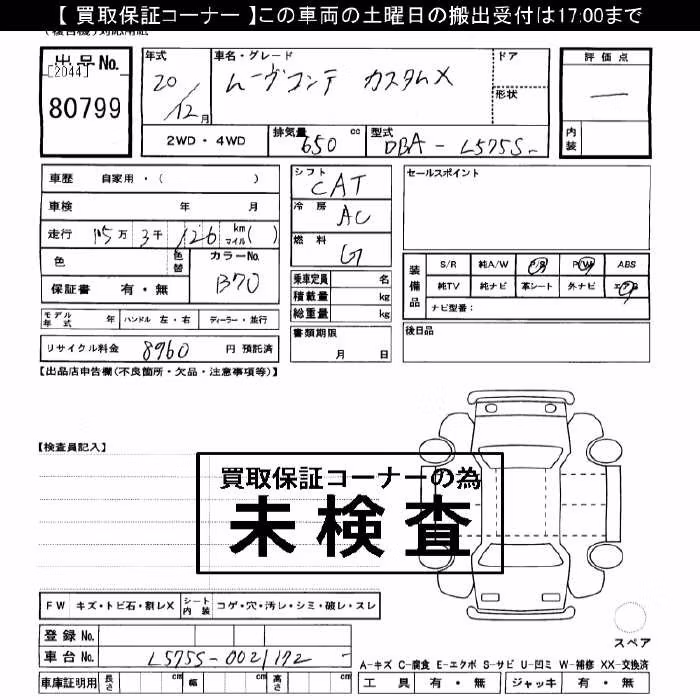 【 買取保証コーナー 】この車両の土曜日の搬出受付は17:00まで
出品No.
[2044]
80799
年式
20/12月
車名・グレード
ムーヴコンテ カスタムX
ドア
形状
評価点
―
内装
2WD・4WD
排気量 650 cc
型式 DBA - L575S-
車歴 自家用・( )
車検 年 月
走行 15万 3千 126 km マイル( )
色
色替
カラーNo. B70
保証書 有・無
モデル年式 年 ハンドル 左・右 ディーラー・並行
リサイクル料金 8960 円 預託済
シフト CAT
冷房 AC
燃料 G
乗車定員 名
積載量 kg
総重量 kg
書類期限 月 日
セールスポイント
装備品
S/R 純A/W P/S P/W ABS
純TV 純ナビ 革シート 外ナビ エアB
ナビ型番:
後日品
【出品店申告欄(不良箇所・欠品・注意事項等)】
【検査員記入】
買取保証コーナーの為
未検査
FW キズ・トビ石・割レX シート内装 コゲ・穴・汚レ・シミ・破レ・スレ
登録 No.
車台 No. L575S-0021172
車庫証明用 長さ cm 幅 cm 高さ cm
スペア
A-キズ C-腐食 E-エクボ S-サビ U-凹ミ W-補修 XX-交換済
工具 有・無 ジャッキ 有・無